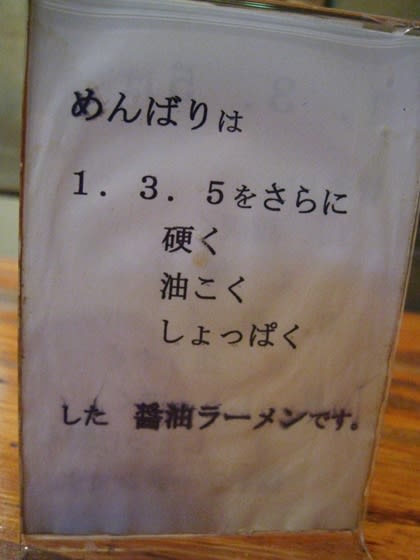 めんばりは
1. 3. 5をさらに
硬く
油こく
しょっぱく
した 醤油ラーメンです。